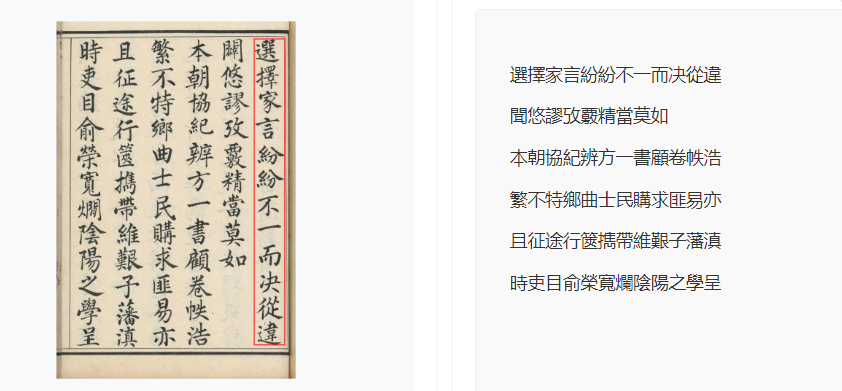 選擇家言紛紛不一而决從違
闢悠謬攷覈精當莫如
本朝協紀辨方一書顧卷帙浩
繁不特鄉曲士民購求匪易亦
且征途行篋擕帶維艱子藩滇
時吏目俞榮寬燗陰陽之學呈
選擇家言紛紛不一而决從違
聞悠謬攷覈精當莫如
本朝協紀辨方一書顧卷帙浩
繁不特鄉曲士民購求匪易亦
且征途行篋擕帶維艱子藩滇
時吏目俞榮寬爛陰陽之學呈